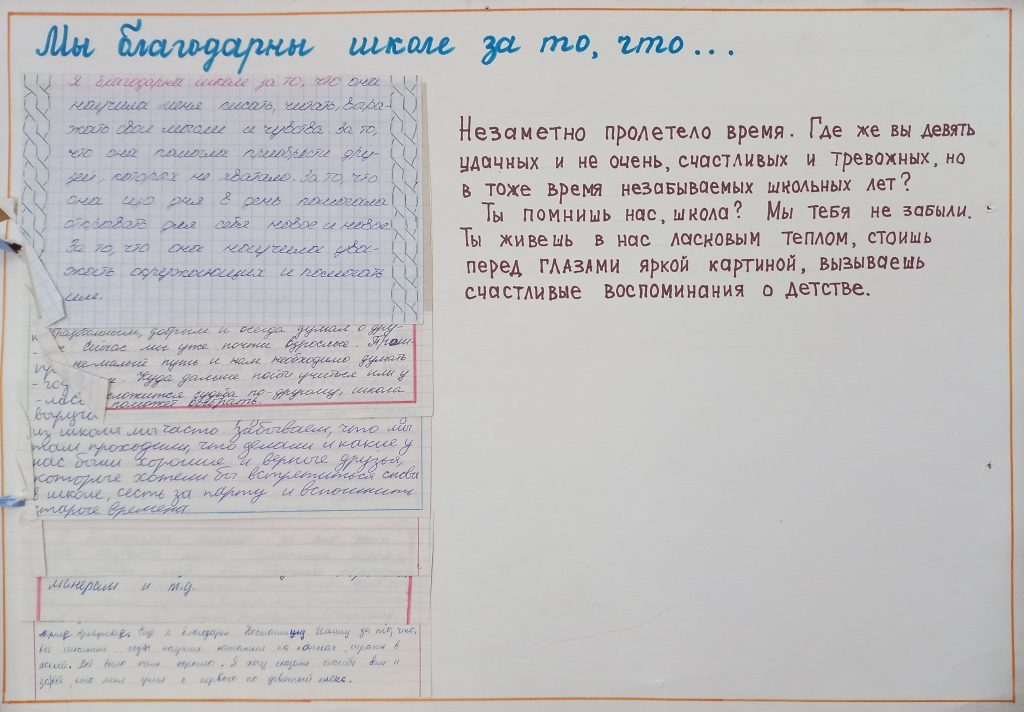 Мы благодарны школе за то, что...
Я благодарна школе за то, что она
научила меня писать, читать, выра-
жать свои мысли и чувства. За то,
что она помогла приобрести дру-
зей, которых не хватало. За то, что
она изо дня в день помогала
открывать для себя новое и новое.
За то, что она научила ува-
жать окружающих и помогать
им.
добрым и всегда думал о дру-
Сейчас мы уже почти взрослые. Прош-
немалый путь и нам необходимо думать
Куда дальше пойти учиться или у
сложится судьба по-другому, школа
поможет выбрать.
из школы мы часто забываем, что мы
там проходили, что делали и какие у
нас были хорошие и верные друзья,
которые хотели бы встретиться снова
в школе, сесть за парту и вспомнить
старые времена.
манерам и т.д.
Ещё я благодарен Константину за то, что,
все школьные годы научил кататься на коньках, играть в
хоккей. Всё было очень хорошо. Я хочу сказать спасибо вам и
кто меня учил с первого по девятый класс.
Незаметно пролетело время. Где же вы девять
удачных и не очень, счастливых и тревожных, но
в тоже время незабываемых школьных лет?
Ты помнишь нас, школа? Мы тебя не забыли.
Ты живешь в нас ласковым теплом, стоишь
перед глазами яркой картиной, вызываешь
счастливые воспоминания о детстве.